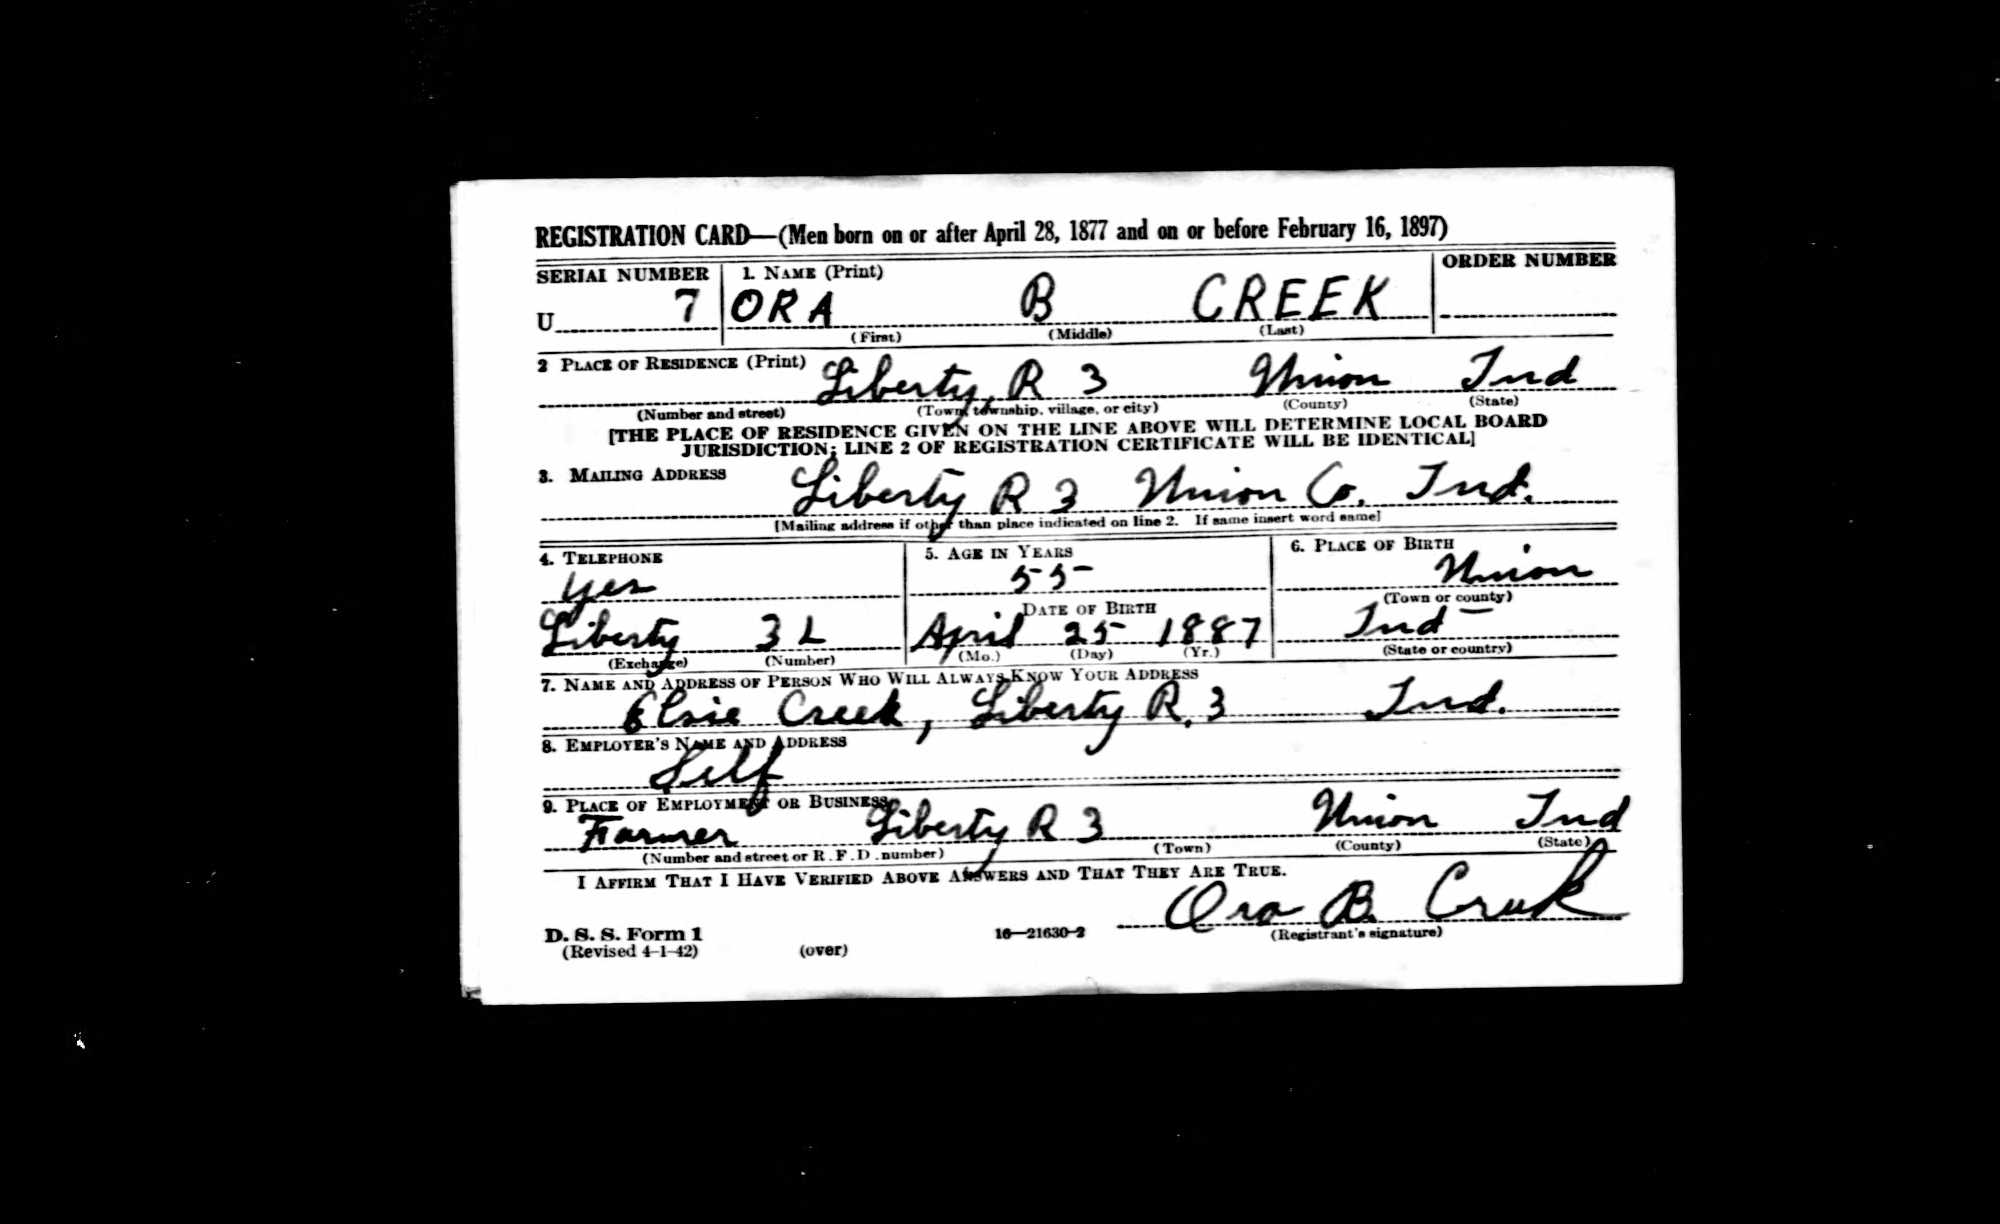 REGISTRATION CARD—(Men born on or after April 28, 1877 and on or before February 16, 1897)
SERIAL NUMBER 1. NAME (Print) ORDER NUMBER
U 7 ORA B CREEK
(First) (Middle) (Last)
2 PLACE OF RESIDENCE (Print)
Liberty, R 3 Union Ind
(Number and street) (Town, township, village, or city) (County) (State)
[THE PLACE OF RESIDENCE GIVEN ON THE LINE ABOVE WILL DETERMINE LOCAL BOARD
JURISDICTION; LINE 2 OF REGISTRATION CERTIFICATE WILL BE IDENTICAL]
3. MAILING ADDRESS
Liberty R 3 Union Co. Ind.
[Mailing address if other than place indicated on line 2. If same insert word same]
4. TELEPHONE 5. AGE IN YEARS 6. PLACE OF BIRTH
Yes 55 Union
DATE OF BIRTH (Town or county)
Liberty 3 L April 25 1887 Ind
(Exchange) (Number) (Mo.) (Day) (Yr.) (State or country)
7. NAME AND ADDRESS OF PERSON WHO WILL ALWAYS KNOW YOUR ADDRESS
Elsie Creek, Liberty R. 3 Ind.
8. EMPLOYER'S NAME AND ADDRESS
Self
9. PLACE OF EMPLOYMENT OR BUSINESS
Farmer Liberty R 3 Union Ind
(Number and street or R. F. D. number) (Town) (County) (State)
I AFFIRM THAT I HAVE VERIFIED ABOVE ANSWERS AND THAT THEY ARE TRUE.
Ora B. Creek
D. S. S. Form 1 16—21630-2 (Registrant's signature)
(Revised 4-1-42) (over)